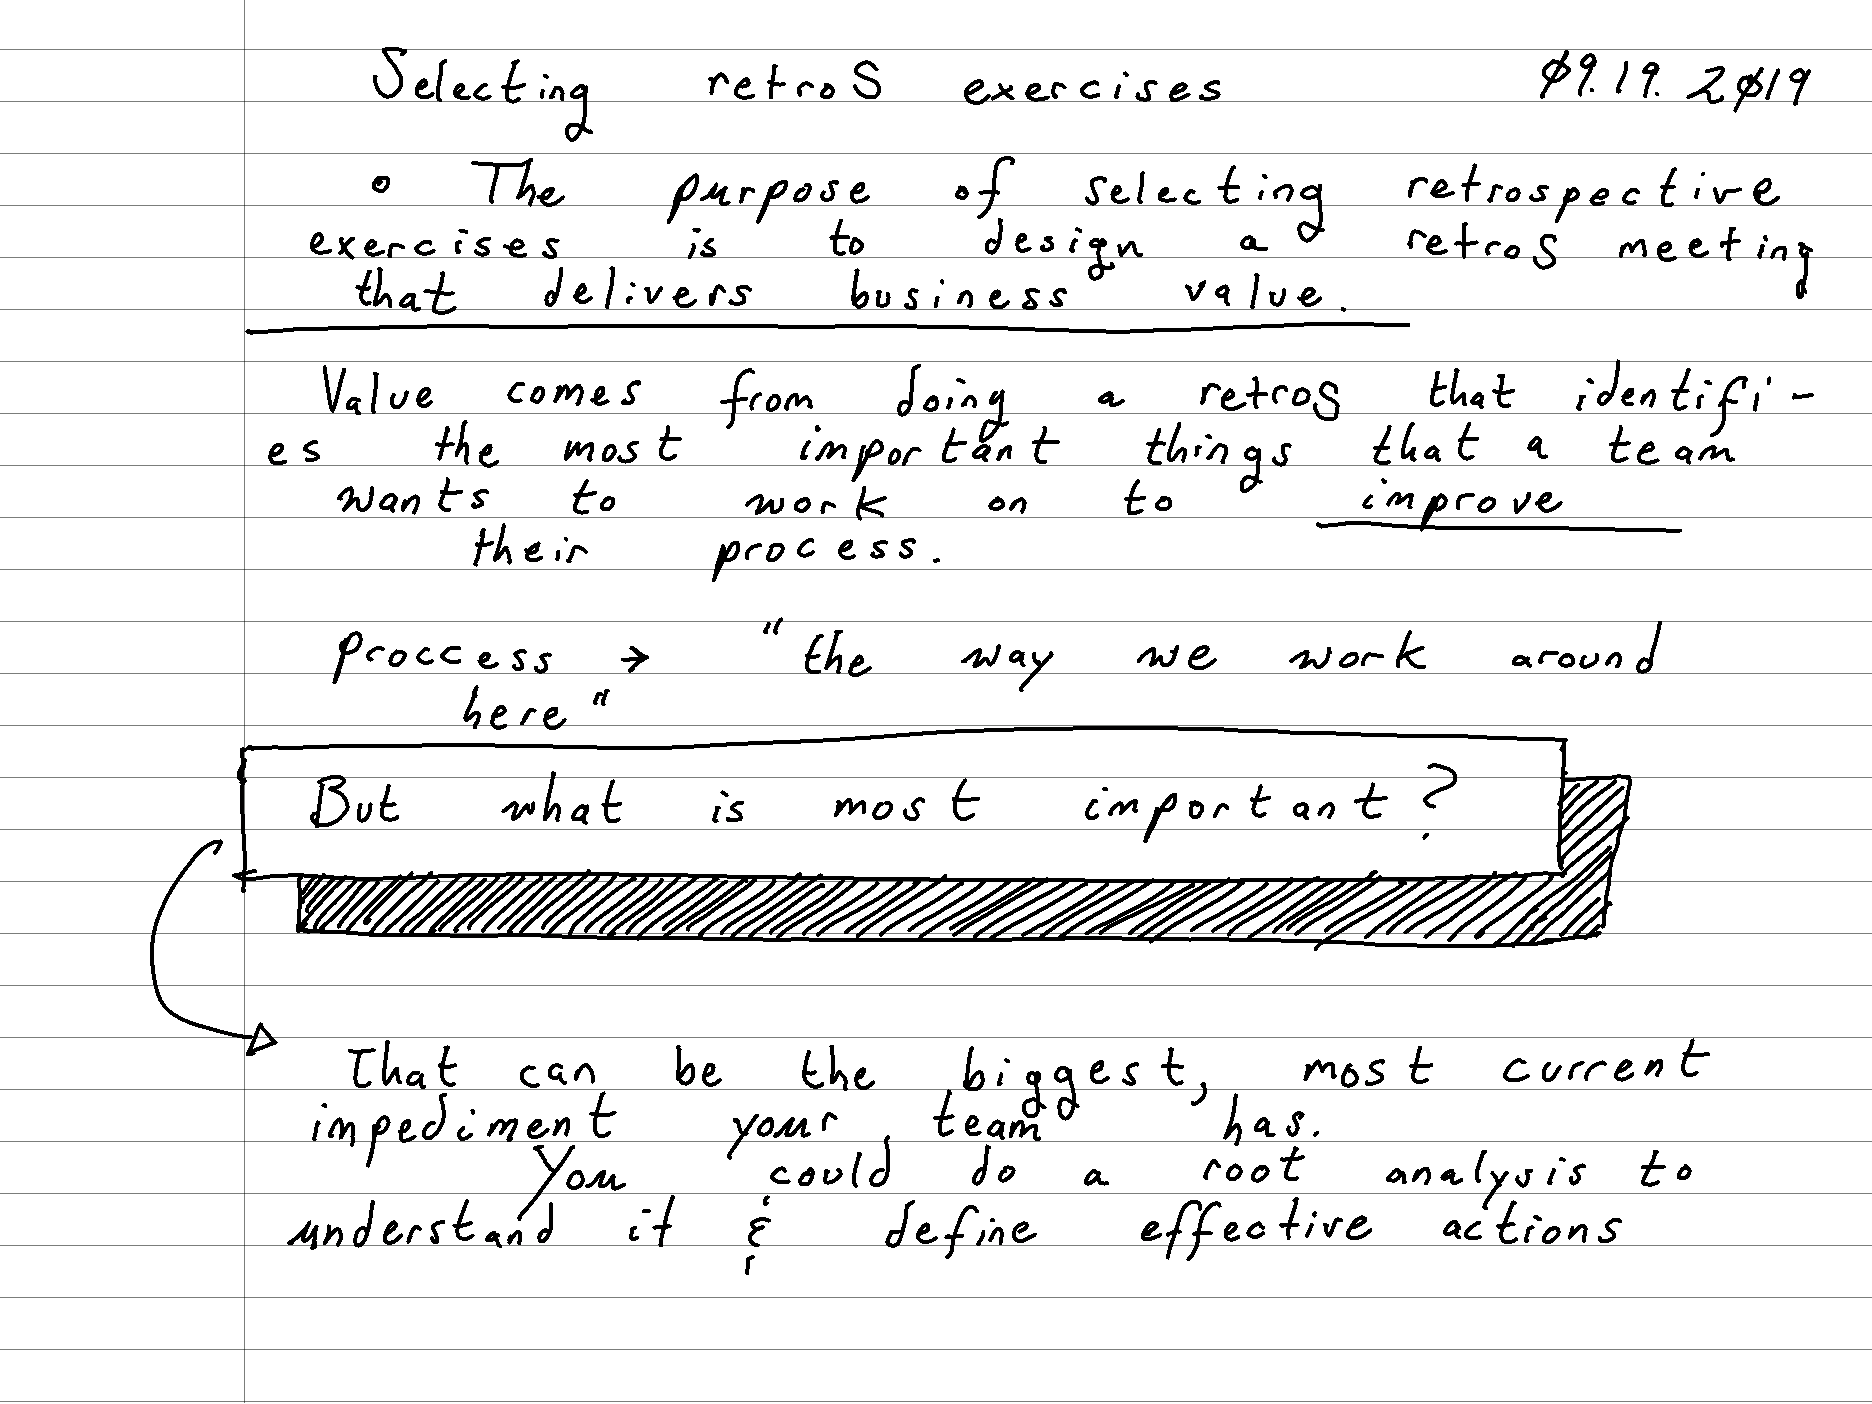 Selecting retroS exercises ø9.19.2ø19
o The purpose of selecting retrospective
exercises is to design a retroS meeting
that delivers business value.
Value comes from doing a retroS that identifi-
es the most important things that a team
wants to work on to improve
their process.
proccess → "the way we work around
here"
But what is most important?
That can be the biggest, most current
impediment your team has.
You could do a root analysis to
understand it & define effective actions